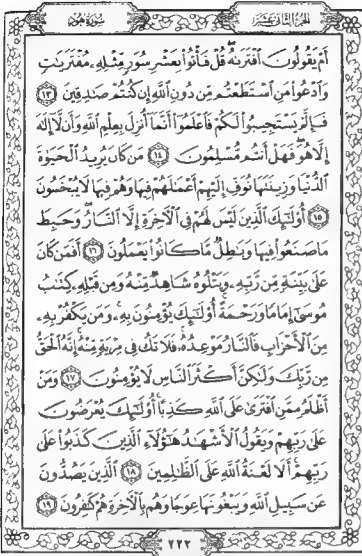 سورة هود الجزء الثاني عشر
أَمْ يَقُولُونَ ٱفْتَرَىٰهُ ۖ قُلْ فَأْتُوا۟ بِعَشْرِ سُوَرٍ مِّثْلِهِۦ مُفْتَرَيَٰتٍ
وَٱدْعُوا۟ مَنِ ٱسْتَطَعْتُم مِّن دُونِ ٱللَّهِ إِن كُنتُمْ صَٰدِقِينَ ١٣
فَإِلَّمْ يَسْتَجِيبُوا۟ لَكُمْ فَٱعْلَمُوٓا۟ أَنَّمَآ أُنزِلَ بِعِلْمِ ٱللَّهِ وَأَن لَّآ إِلَٰهَ
إِلَّا هُوَ ۖ فَهَلْ أَنتُم مُّسْلِمُونَ ١٤ مَن كَانَ يُرِيدُ ٱلْحَيَوٰةَ
ٱلدُّنْيَا وَزِينَتَهَا نُوَفِّ إِلَيْهِمْ أَعْمَٰلَهُمْ فِيهَا وَهُمْ فِيهَا لَا يُبْخَسُونَ
١٥ أُو۟لَٰٓئِكَ ٱلَّذِينَ لَيْسَ لَهُمْ فِى ٱلْءَاخِرَةِ إِلَّا ٱلنَّارُ ۖ وَحَبِطَ
مَا صَنَعُوا۟ فِيهَا وَبَٰطِلٌ مَّا كَانُوا۟ يَعْمَلُونَ ١٦ أَفَمَن كَانَ
عَلَىٰ بَيِّنَةٍ مِّن رَّبِّهِۦ وَيَتْلُوهُ شَاهِدٌ مِّنْهُ وَمِن قَبْلِهِۦ كِتَٰبُ
مُوسَىٰٓ إِمَامًا وَرَحْمَةً ۚ أُو۟لَٰٓئِكَ يُؤْمِنُونَ بِهِۦ ۚ وَمَن يَكْفُرْ بِهِۦ
مِنَ ٱلْأَحْزَابِ فَٱلنَّارُ مَوْعِدُهُۥ ۚ فَلَا تَكُ فِى مِرْيَةٍ مِّنْهُ ۚ إِنَّهُ ٱلْحَقُّ
مِن رَّبِّكَ وَلَٰكِنَّ أَكْثَرَ ٱلنَّاسِ لَا يُؤْمِنُونَ ١٧ وَمَنْ
أَظْلَمُ مِمَّنِ ٱفْتَرَىٰ عَلَى ٱللَّهِ كَذِبًا ۚ أُو۟لَٰٓئِكَ يُعْرَضُونَ
عَلَىٰ رَبِّهِمْ وَيَقُولُ ٱلْأَشْهَٰدُ هَٰٓؤُلَآءِ ٱلَّذِينَ كَذَبُوا۟ عَلَىٰ
رَبِّهِمْ ۚ أَلَا لَعْنَةُ ٱللَّهِ عَلَى ٱلظَّٰلِمِينَ ١٨ ٱلَّذِينَ يَصُدُّونَ
عَن سَبِيلِ ٱللَّهِ وَيَبْغُونَهَا عِوَجًا وَهُم بِٱلْءَاخِرَةِ هُمْ كَٰفِرُونَ ١٩
٢٢٣